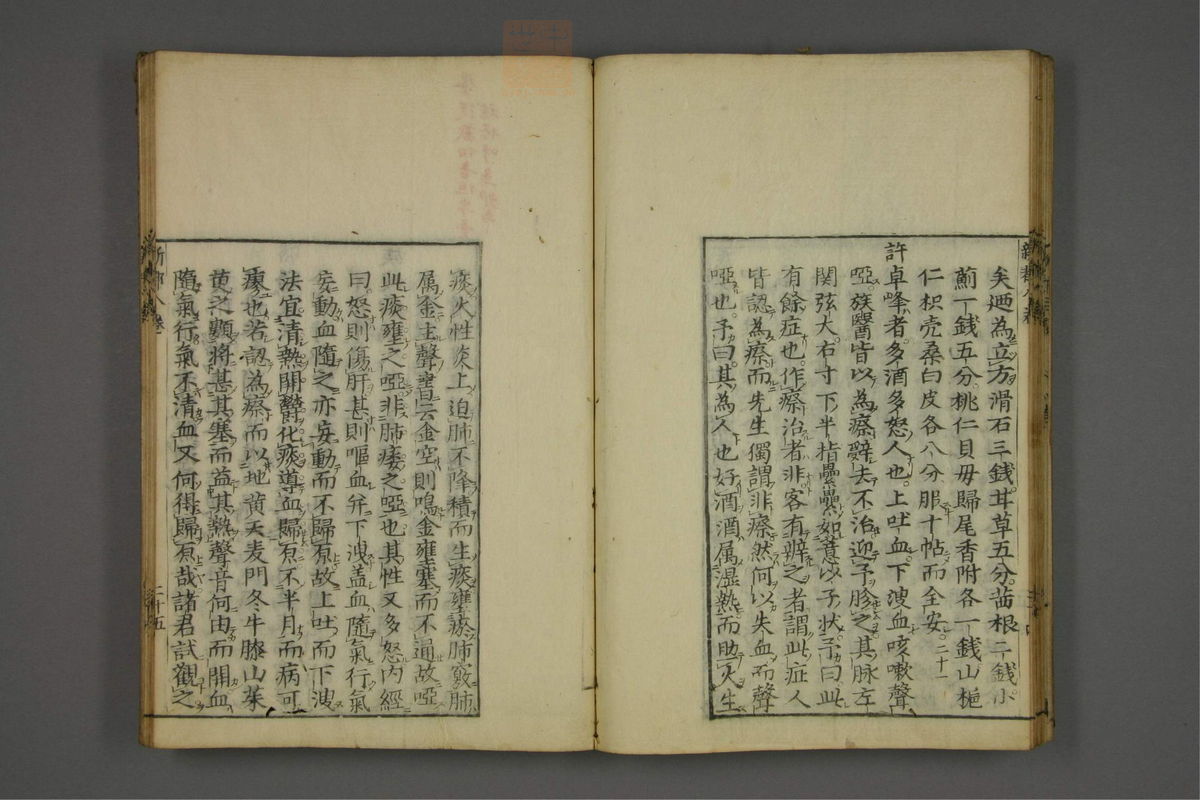 矣廼為立方滑石三錢甘草五分茜根二錢小
薊一錢五分桃仁貝母歸尾香附各一錢山梔
仁枳壳桑白皮各八分服十帖而全安二十一
許卓峰者多酒多怒人也上吐血下洩血咳嗽聲
啞族醫皆以為瘵辭去不治迎予胗之其脉左
関弦大右寸下半指壘壘如薏以子狀予曰此
有餘症也作瘵治者非客有辨之者謂此症人
皆認為瘵而先生獨謂非瘵然何以失血而聲
啞也予曰其為人也好酒酒属湿熱而助火生
痰火性炎上迫肺不降積而生痰壅於肺竅肺
属金主聲書云金空則鳴金壅塞而不通故啞
此痰壅之啞非肺痿之啞也其性又多怒内經
曰怒則傷肝甚則嘔血并下洩盖血隨氣行氣
妄動血隨之亦妄動而不歸原故上吐而下洩
法宜清熱開欝化痰導血歸原不半月而病可
瘳也若認為瘵而以地黄天麦門冬牛膝山茱
萸之類將甚其塞而益其熱聲音何由而開血
隨氣行氣不清血又何得歸原哉諸君試觀之
二十五